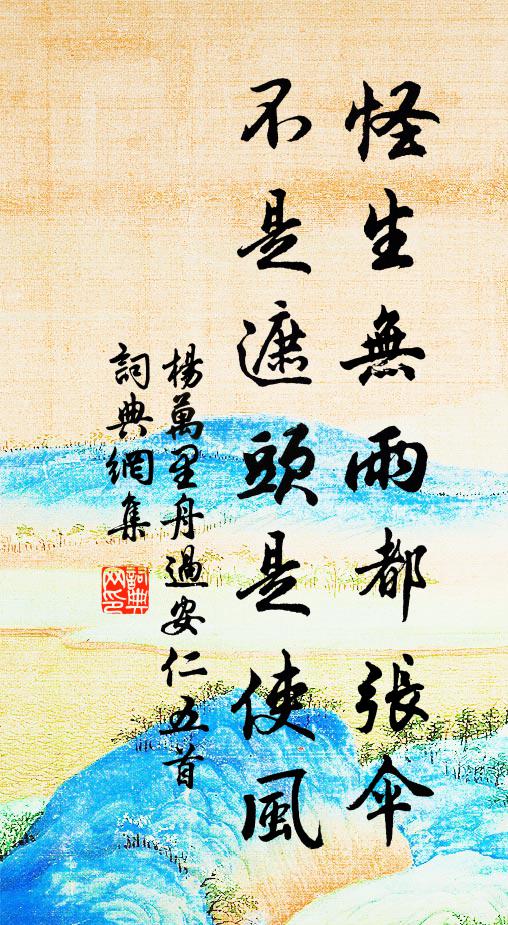 怪生無雨都張傘
不是遮頭是使風
楊萬里舟過安仁五首
詞典網集
詞典網印